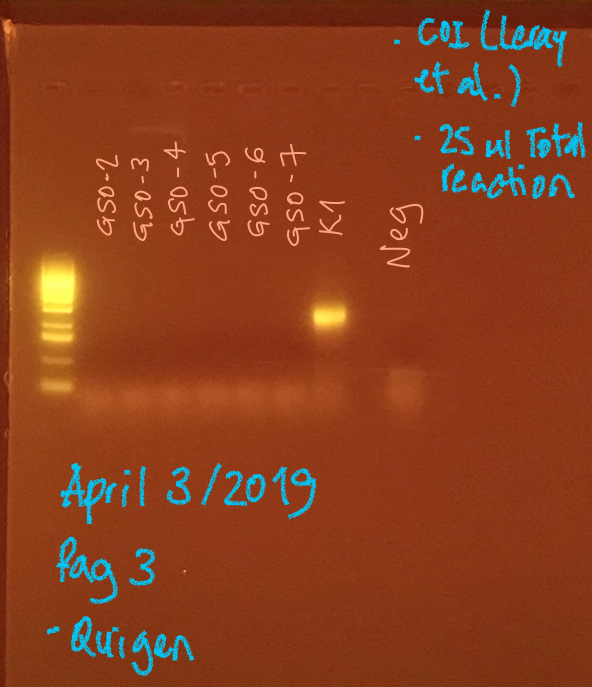 · COI (Leray
et al.)
· 25 ul Total
reaction
GSO-2
GSO-3
GSO-4
GSO-5
GSO-6
GSO-7
K1
Neg
April 3/2019
Pag 3
- Quigen